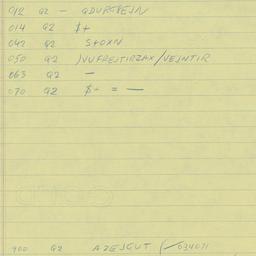 012 G2 - QDURTVEJN
014 G2 $+
042 G2 StOXN
050 G2 )VUFREJTIRZAX/VEJNTIR
063 G2 —
070 G2 $- = —
900 G2 AZEJGUT (/034071